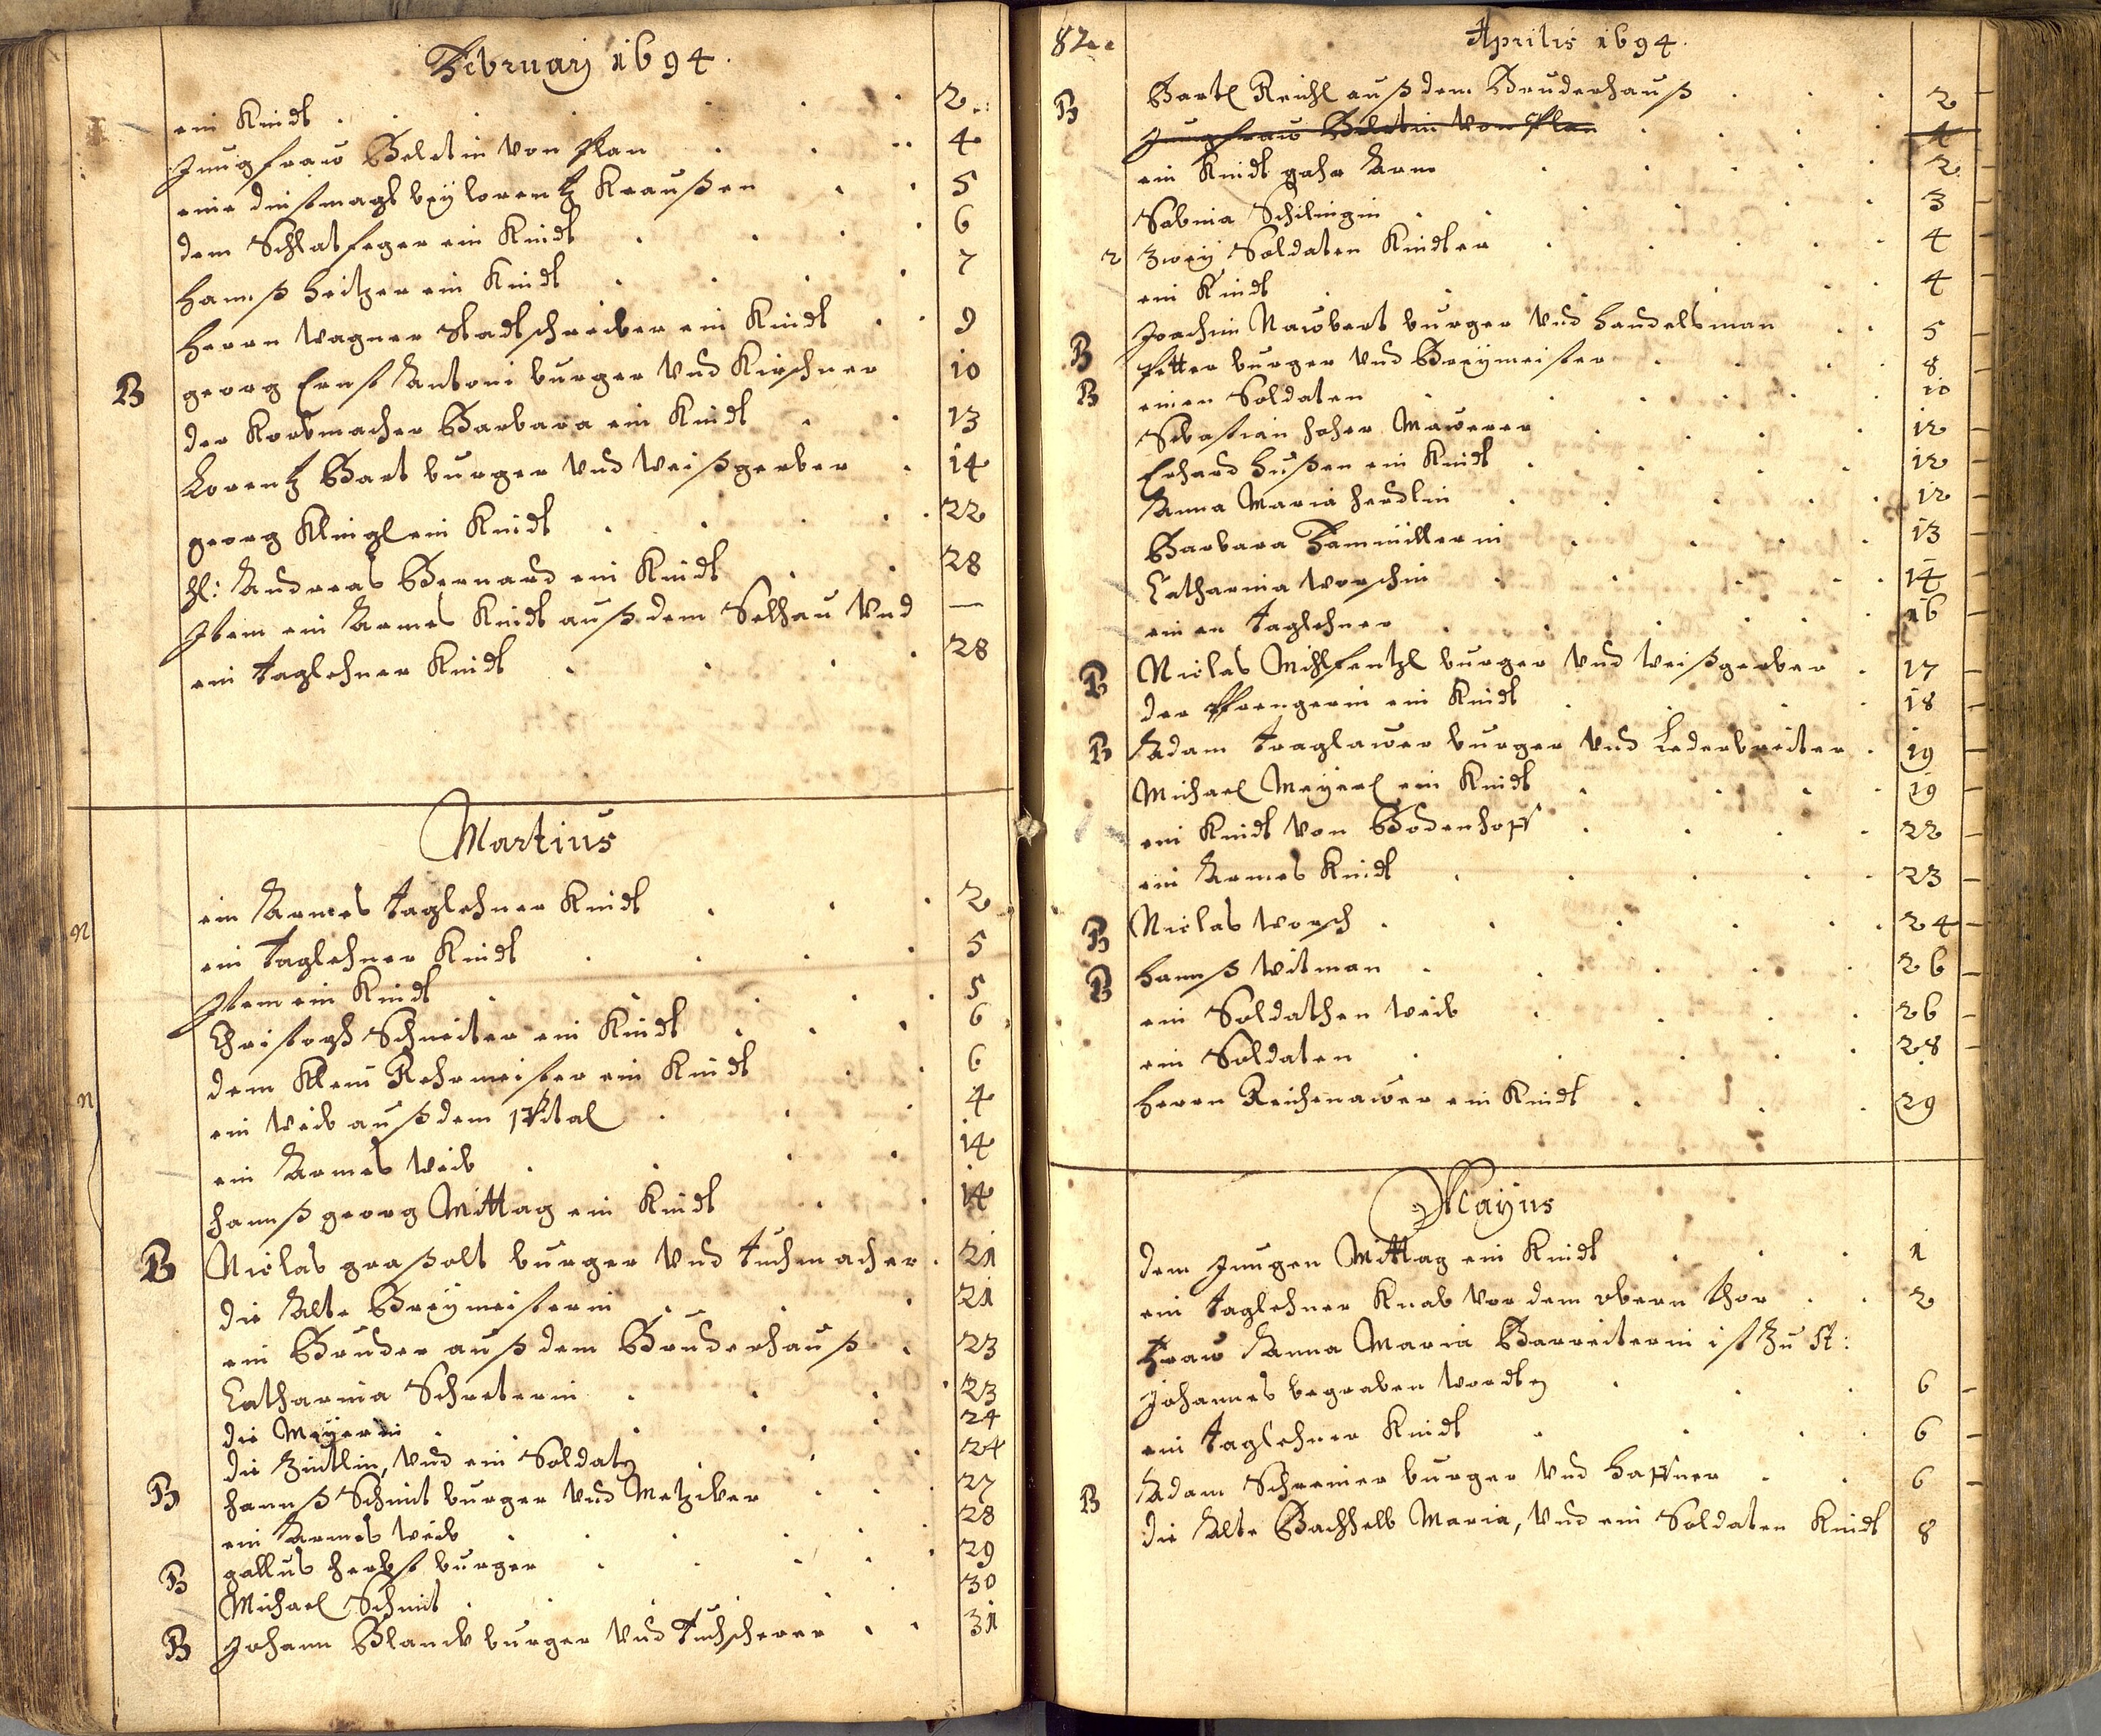 Februarj 1694.
ein Kindt 2
Jungfraw Beldtin von Plan 4
eine dinstmagt bey Lorentz Kraußen 5
dem Schlatfeger ein Kindt 6
Hannß Heitzer ein Kindt 7
Herrn Wagner Stadtschreiber ein Kindt 9
B georg Ernst Antoni burger Vnd Kirschner 10
der Korbmacher Barbara ein Kindt 13
Lorentz Bart burger Vnd Weißgerber 14
georg Klingl ein Kindt 22
Hl: Andreas Bernard ein Kindt 28
Jtem ein Armes Kindt auß dem Vnd —
ein Taglehner Kindt 28
Martius
ein Armes Taglehner Kindt 2
n
ein Taglehner Kindt 5
Jtem ein Kindt 5
Christoph Schneiter ein Kindt 6
dem Klein Rohrmeister ein Kindt 6
n ein Weib auß dem spital 4
ein Armes Weib 14
Hannß georg Mittag ein Kindt 14
B Niclas graßolt burger Vnd Tuchmacher 21
die Alte Breymeisterin 21
ein Bruder auß dem Bruderhauß 23
Catharina Schreterin 23
die Meyerin 24
die Zintlin, Vnd ein Soldatn 24
B Hannß Schmit burger Vnd Metziber 27
ein Armes Weib 28
B gallus Herbst burger 29
Michael Schmit 30
B Johann Blanck burger Vnd Tuchscherer 31
82
Aprilis 1694.
B Bartl Reichl auß dem Bruderhauß 2
Jungfraw Beldtin Von Plan 4
ein Kindt gahr Arm 2
Sabina Schilingin 3
2 Zwey Soldaten Kindter 4
ein Kindt 4
Joachim Nawbert burger Vnd Handelsman 5
B Petter burger Vnd Breymeister 8
B einen Soldaten 10
Sebastian Hoher Mawerer 12
Erhard Hußen ein Kindt 12
Anna Maria Herdlin 12
Barbara Hammüllerin 13
Catharina Worschin 14
einen Taglehner 16
B Niclas Mihlfentzl burger Vnd Weißgerber 17
der Pfrengerin ein Kindt 18
B Adam Traglawer burger Vnd Lederbreiter 19
Michael Meyerl ein Kindt 19
ein Kindt Von Bodenhoff 22
ein Armes Kindt 23
B Niclas Worsch 24
B Hannß Witman 26
ein Soldathen Weib 26
ein Soldaten 28
Herrn Reichenawer ein Kindt 29
Mayus
dem Jungen Mittag ein Kindt 1
ein Taglehner Knab Vor dem obern Thor 2
Fraw Anna Maria Barreiterin ist Zu St:
Johannes begraben wordtn 6
ein Taglehner Kindt 6
B Adam Schreiner burger Vnd Haffner 6
die Alte Maria, Vnd ein Soldaten Kindt 8